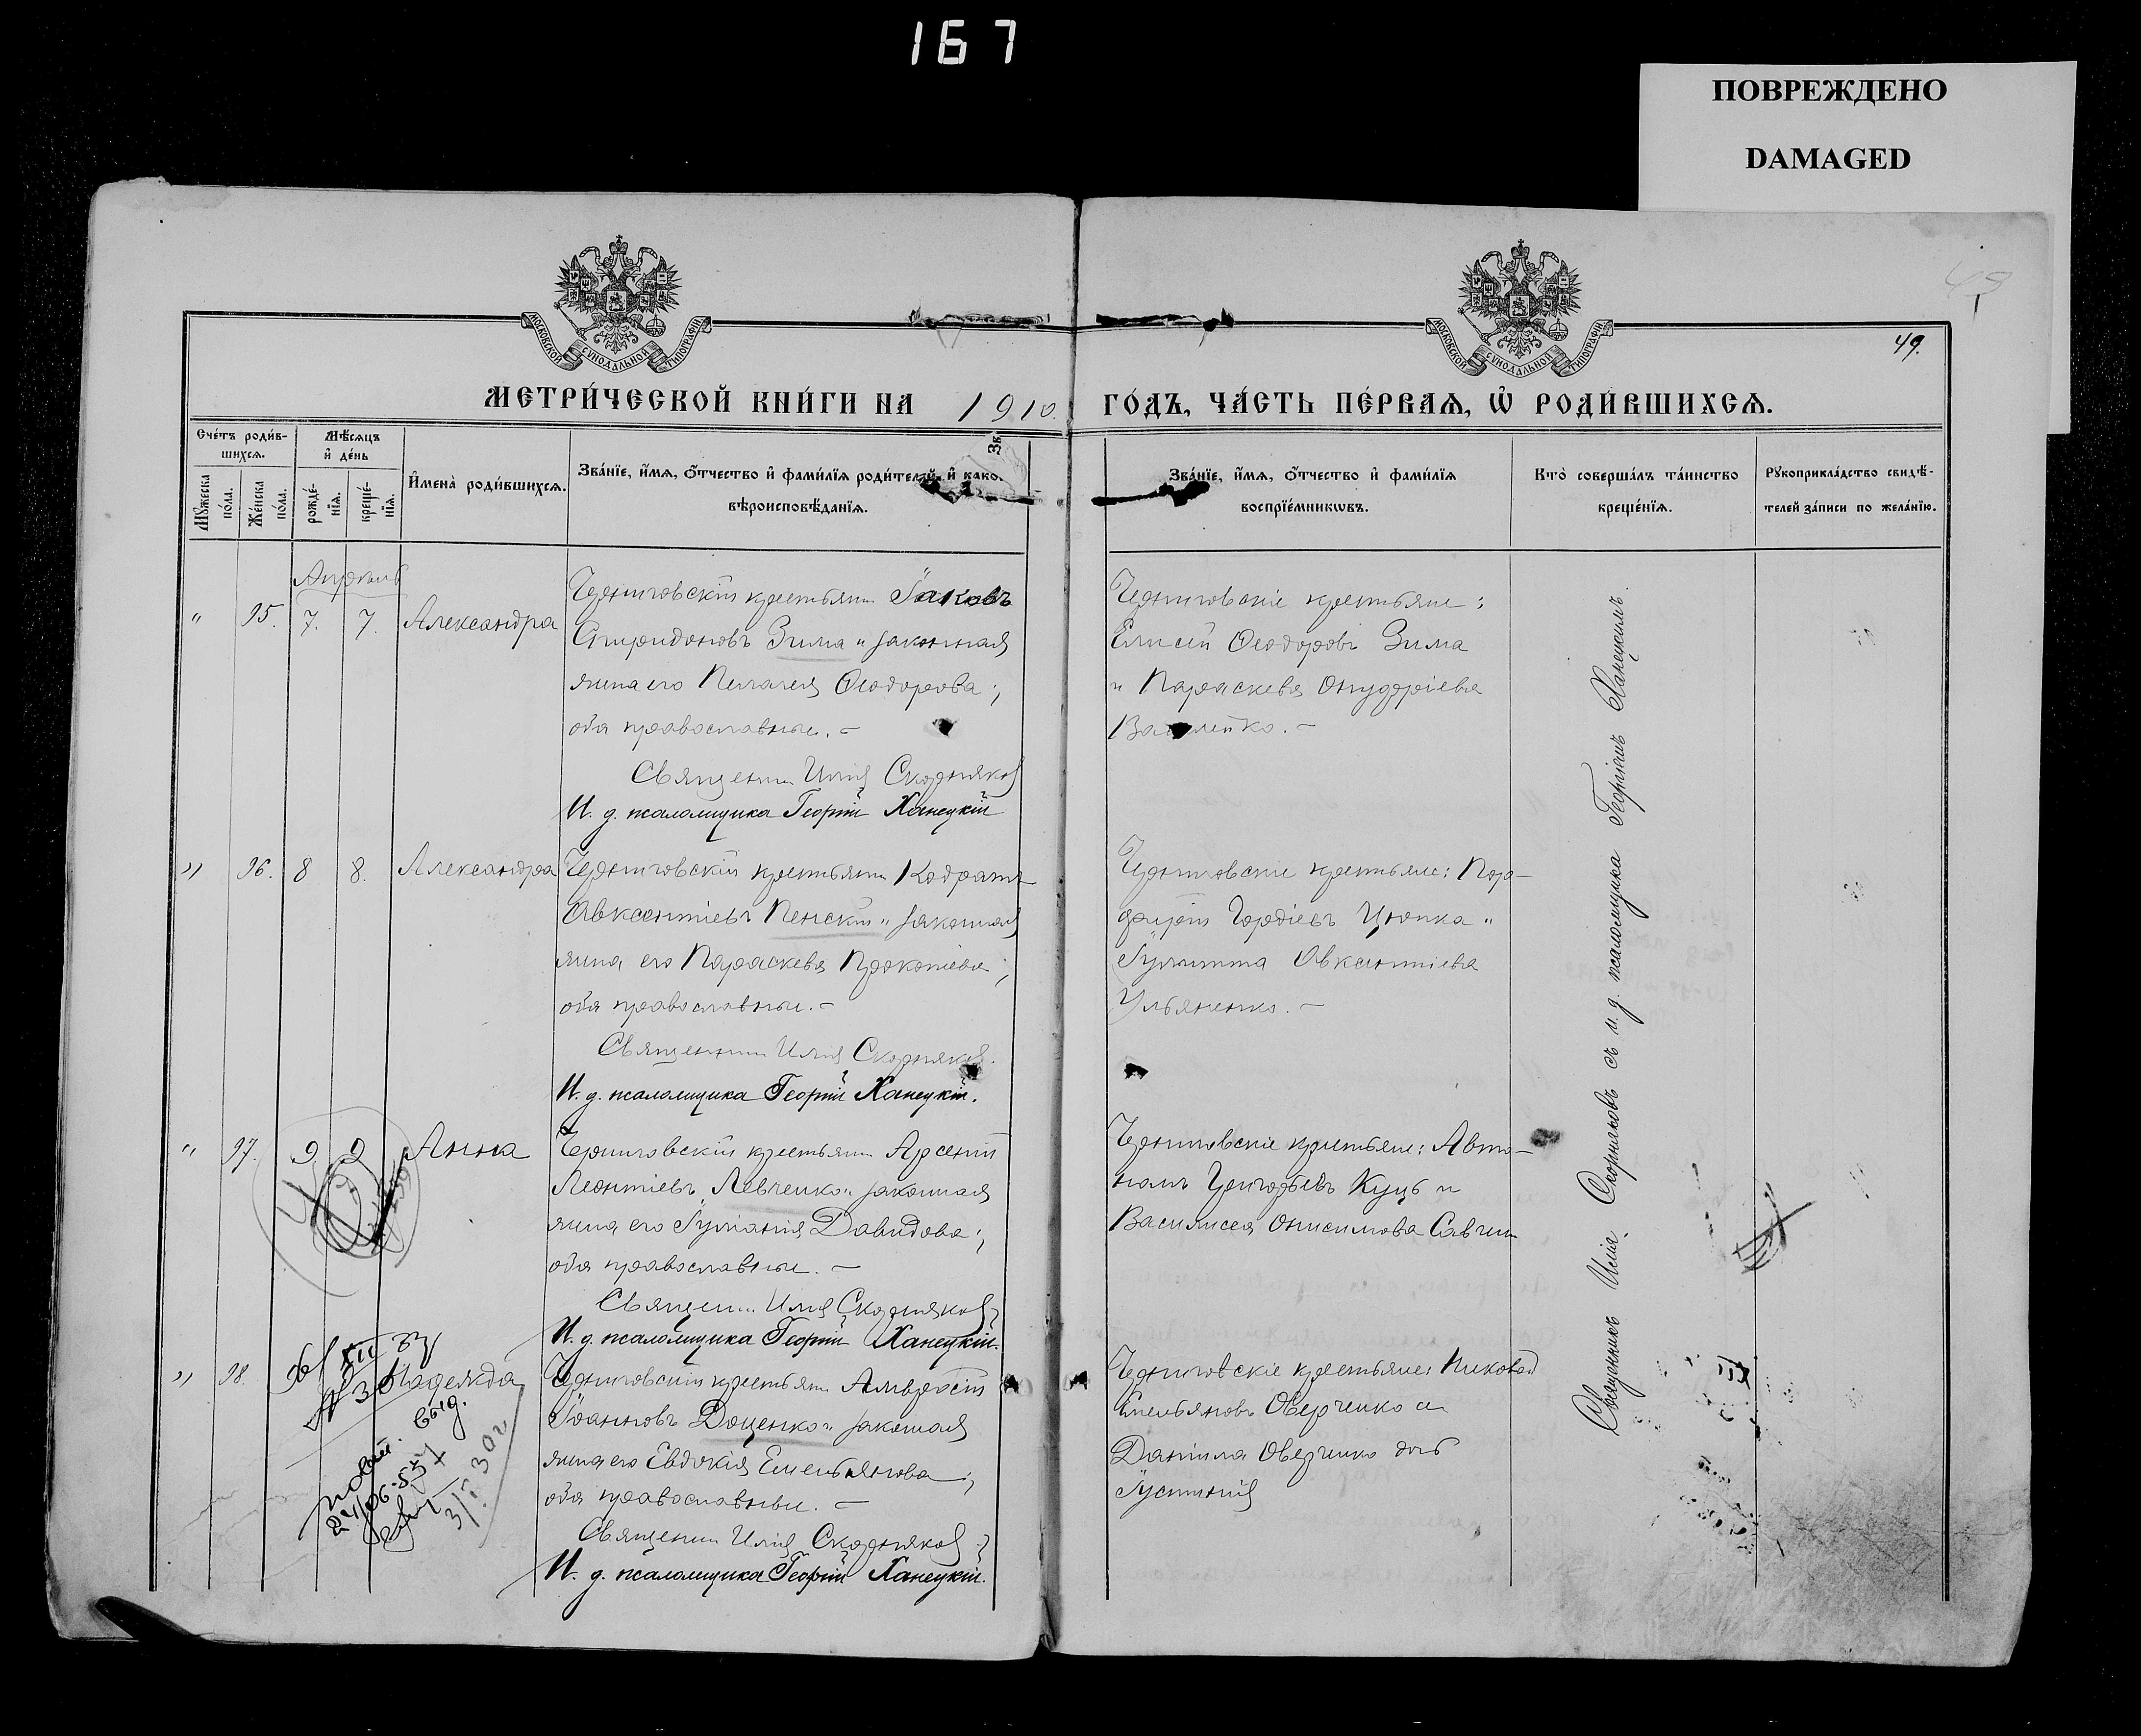 167
ПОВРЕЖДЕНО
DAMAGED
МОСКОВСКОЙ СѴНОДАЛЬНОЙ ТИПОГРАФІИ
МОСКОВСКОЙ СѴНОДАЛЬНОЙ ТИПОГРАФІИ
49.
МЕТРИ́ЧЕСКОЙ КНИ́ГИ НА 1910. ГО́ДЪ, ЧА́СТЬ ПЕ́РВАѦ, Ѡ҆ РОДИ́ВШИХСѦ.
Сче́тъ роди́в-
шихсѧ.
Мꙋ́жеска по́ла.
Же́нска по́ла.
Мѣ́сѧцъ
и҆ де́нь
рожде́-
нїѧ.
креще́-
нїѧ.
И҆мена̀ роди́вшихсѧ.
Зва́нїе, и҆́мѧ, о҆́тчество и҆ фами́лїѧ роди́телей, и҆ како-
вѣроисповѣ́данїѧ.
Зва́нїе, и҆́мѧ, о҆́тчество и҆ фами́лїѧ
воспрїе́мникѡвъ.
Кто̀ соверша́лъ та́инство
креще́нїѧ.
Рꙋкоприкла́дство свидѣ́-
телей за́писи по жела́нїю.
Апрѣль
" 95. 7. 7. Александра
Черниговскій крестьян Іаковъ
Спиридоновъ Зима и законная
жена его Пелагея Ѳеодорова;
оба православные. –
Священн Илія Скорняков
И. д. псаломщика Георгій Ханецкій
Черниговскіе крестьяне:
Елисей Ѳеодоровъ Зима
и Параскева Онуфріева
" 96. 8 8. Александра
Черниговскій крестьян Кодратъ
Авксентіевъ Пенскій и законная
жена его Параскева Прокопіева;
оба православные. –
Священник Илія Скорняков.
И. д. псаломщика Георгій Ханецкій.
Черниговскіе крестьяне: Пор-
фирій Гордіевъ Цюпка и
Іулитта Авксентіева
Ульяненко. –
" 97. 9 9 Анна
Черниговскій крестьян Арсеній
Леонтіевъ Левченко и законная
жена его Іуліанія Давидова;
оба православные. –
Священ. Илія Скорняков
И. д. псаломщика Георгій Ханецкій.
Черниговскіе крестьяне: Авто-
номъ Григорьевъ Куцъ и
Василисса Онисимова Савчин
" 98. Надежда
Черниговскій крестьян Амвросій
Іоанновъ Доценко и законная
жена его Евдокія Емельянова;
оба православные. –
Священн Илія Скорняков
И. д. псаломщика Георгій Ханецкій.
Черниговскіе крестьяне: Никовай
Емельяновъ Оверченко и
Даніила Оверченко дочь
Іустинія
повт. выд.
24/06-57
Священникъ Илія Скорняковъ съ и. д. псаломщика Георгіемъ Ханецкимъ.